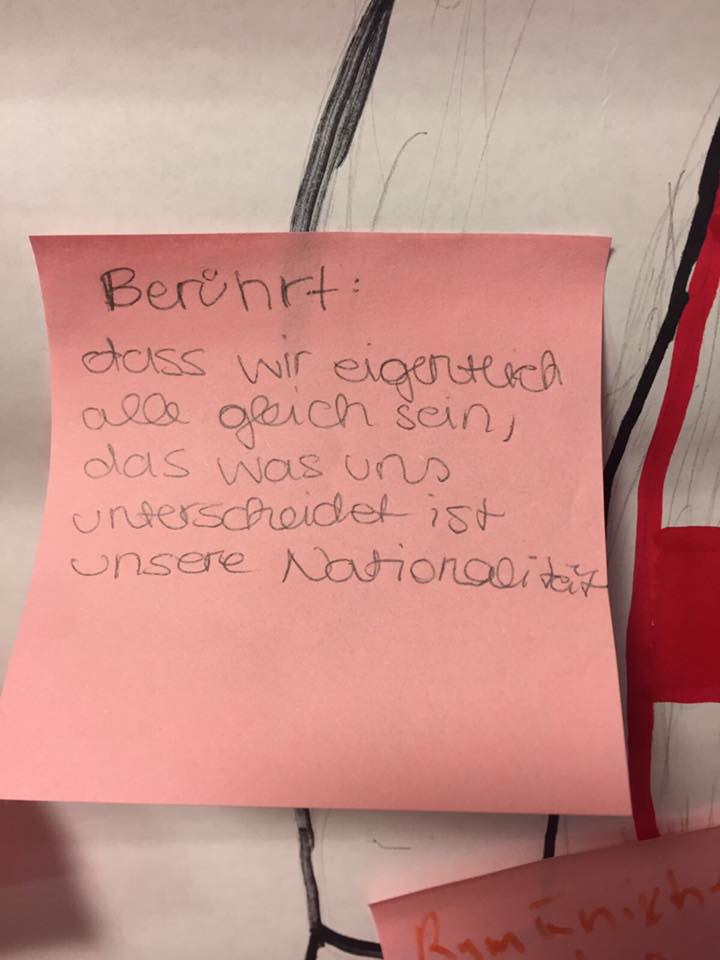 Berührt:
dass wir eigentlich
alle gleich sein,
das was uns
unterscheidet ist
unsere Nationalität